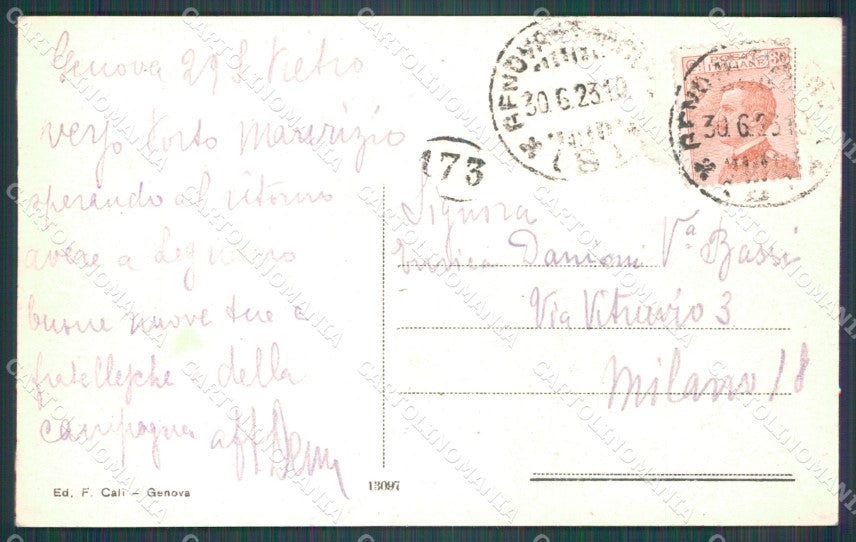 Genova 29 S Pietro
verso Porto Maurizio
sperando al ritorno
avere a Legnano
buone nuove tue e
fratellesche della
campagna aff
Signora
Enrica Damioni Va Bassi
Via Vitruvio 3
Milano 18
173
30.6.23 10
30.6.23 1
Ed. F. Cali - Genova
13097
CARTOLINOMANIA